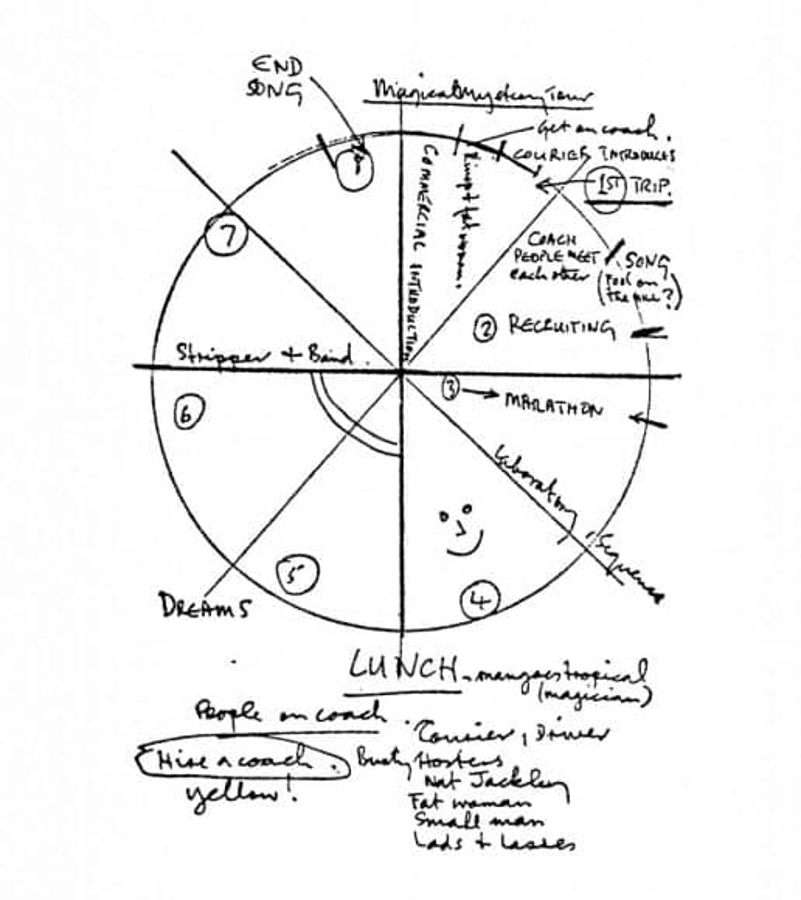 END
SONG
Magical Mystery Tour
Get on coach.
COURIER INTRODUCES
1ST TRIP.
COMMERCIAL INTRODUCTION
fat woman.
COACH
PEOPLE MEET
each other
SONG
(Fool on
the
?)
2 RECRUITING
3 → MARATHON
Laboratory Sequence
4
5
DREAMS
6
Stripper + Band.
7
LUNCH - mangoes tropical
(magician)
People on coach.
Hire a coach.
yellow!
Courier, Driver
Busty Hostess
Nat Jackley
Fat woman
Small man
Lads + Lasses